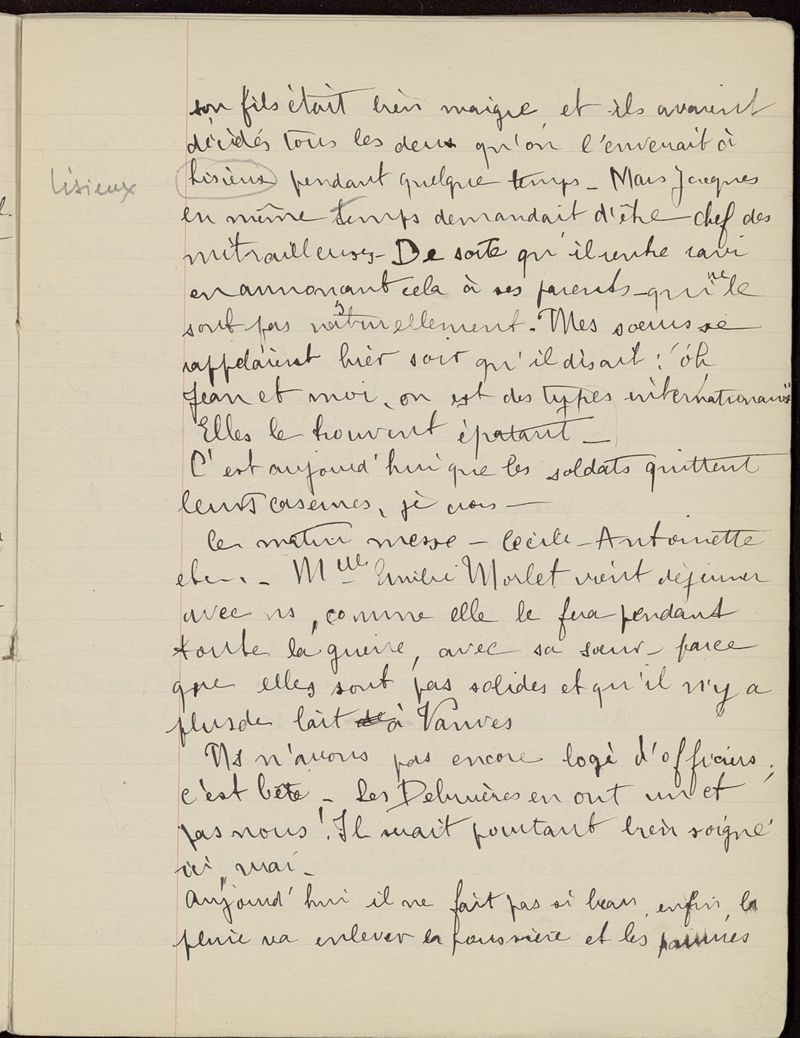 son fils était bien maigre et ils avaient
décidés tous les deux qu'on l'enverrait à
Lisieux
Lisieux pendant quelque temps _ Mais Jacques
en même temps demandait d'être chef des
mitrailleuses - De sorte qu'il entre ravi
en annonçant cela à ses parents - qui ne le
sont pas naturellement. Mes sœurs se
rappelaient hier soir qu'il disait : "oh
Jean et moi, on est des types internationaux"
Elles le trouvent épatant _
C'est aujourd'hui que les soldats quittent
leurs casernes, je crois —
Ce matin messe - Cécile - Antoinette
etc... - Mlle Emilie Morlet vient déjeuner
avec ns, comme elle le fera pendant
toute la guerre, avec sa sœur - parce
que elles sont pas solides et qu'il n'y a
plus de lait de à Vanves
Ns n'avons pas encore logé d'officiers,
c'est bête - Les Debruères en ont un et
pas nous ! Il serait pourtant bien soigné
ici,
Aujourd'hui il ne fait pas si beau, enfin, la
pluie va enlever la poussière et les